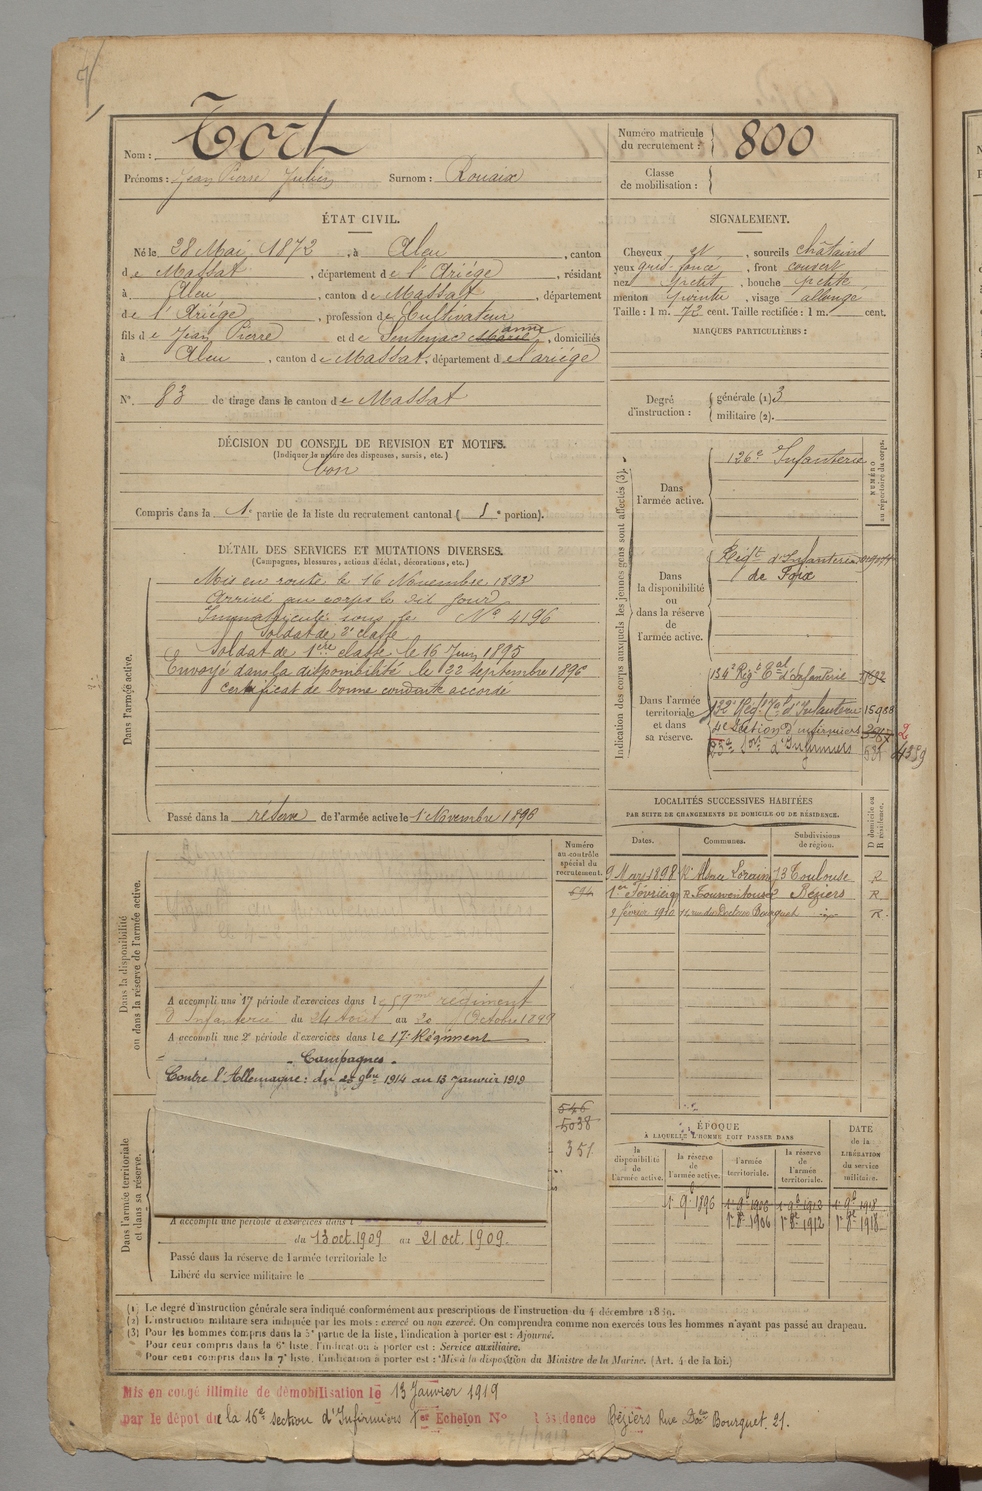 Nom : Tort
Prénoms : Jean Pierre Julien Surnom : Rouaix
Numéro matricule du recrutement : 800
Classe de mobilisation :
ÉTAT CIVIL.
Né le 28 Mai 1872, à Aleu, canton
de Massat, département de l'Ariége, résidant
à Aleu, canton de Massat, département
de l'Ariége, profession de Cultivateur
fils de Jean Pierre et de Sentenac Marie anne, domiciliés
à Aleu, canton de Massat, département de l'ariége
N° 83 de tirage dans le canton de Massat
SIGNALEMENT.
Cheveux et, sourcils châtains
yeux gris foncé, front couvert
nez petit, bouche petite
menton pointu, visage allongé
Taille : 1 m. 72 cent. Taille rectifiée : 1 m. cent.
MARQUES PARTICULIÈRES :
Degré d'instruction : générale (1) 3
militaire (2).
DÉCISION DU CONSEIL DE REVISION ET MOTIFS.
(Indiquer la nature des dispenses, sursis, etc.)
bon
Compris dans la 1e partie de la liste du recrutement cantonal ( e portion).
DÉTAIL DES SERVICES ET MUTATIONS DIVERSES.
(Campagnes, blessures, actions d'éclat, décorations, etc.)
Dans l'armée active.
Mis en route le 16 Novembre 1893
Arrivé au corps le dit jour
Immatriculé sous le N° 4196
Soldat de 2e classe
Soldat de 1ère classe le 16 Juin 1895
Envoyé dans la disponibilité le 22 septembre 1896
Certificat de bonne conduite accordé
Passé dans la réserve de l'armée active le 1 Novembre 1896
Indication des corps auxquels les jeunes gens sont affectés (3).
NUMÉRO au répertoire du corps.
Dans l'armée active.
126e Infanterie
Dans la disponibilité ou dans la réserve de l'armée active.
Régt d'Infanterie
de Foix
Dans l'armée territoriale et dans sa réserve.
134e Régt Tal d'Infanterie
132e Régt Tal d'Infanterie 15988
4e Section d'infirmiers
d'Infirmiers
LOCALITÉS SUCCESSIVES HABITÉES
PAR SUITE DE CHANGEMENTS DE DOMICILE OU DE RÉSIDENCE.
Dates. Communes. Subdivisions de région. D domicile ou R résidence.
9 Mars 1898 Alsace Lorraine 13 Toulouse R
1er Février Béziers R
2 février 1910 11 rue du Docteur Bourguet R
Dans la disponibilité ou dans la réserve de l'armée active.
Numéro au contrôle spécial du recrutement.
694
A accompli une 1re période d'exercices dans le 59me régiment
d'Infanterie du 24 Août au 20 Octobre 1899
A accompli une 2e période d'exercices dans le 17e Régiment
Campagnes
Contre l'Allemagne : du 9bre 1914 au 13 Janvier 1919
Dans l'armée territoriale et dans sa réserve.
546
5038
351
A accompli une période d'exercices dans l
du 13 oct. 1909 au 21 oct. 1909.
Passé dans la réserve de l'armée territoriale le
Libéré du service militaire le
ÉPOQUE
À LAQUELLE L'HOMME DOIT PASSER DANS
la disponibilité de l'armée active. la réserve de l'armée active. l'armée territoriale. la réserve de l'armée territoriale.
DATE de la LIBÉRATION du service militaire.
1r 9b 1896 1r 9b 1906 1r 9b 1912 1r 9b 1918
1r 8e 1906 1r 8e 1912 1r 8e 1918
(1) Le degré d'instruction générale sera indiqué conformément aux prescriptions de l'instruction du 4 décembre 1889.
(2) L'instruction militaire sera indiquée par les mots : exercé ou non exercé. On comprendra comme non exercés tous les hommes n'ayant pas passé au drapeau.
(3) Pour les hommes compris dans la 5e partie de la liste, l'indication à porter est : Ajourné.
Pour ceux compris dans la 6e liste, l'indication à porter est : Service auxiliaire.
Pour ceux compris dans la 7e liste, l'indication à porter est : Mis à la disposition du Ministre de la Marine. (Art. 4 de la loi.)
Mis en congé illimité de démobilisation le 13 Janvier 1919
par le dépôt de la 16e section d'Infirmiers 1er Echelon N° Résidence Béziers Rue Doc Bourguet 21.